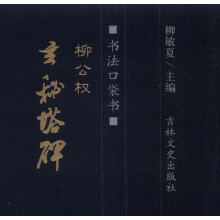 柳敏夏/主编
吉林文史出版社
■书法口袋书■
柳公权
玄秘塔碑